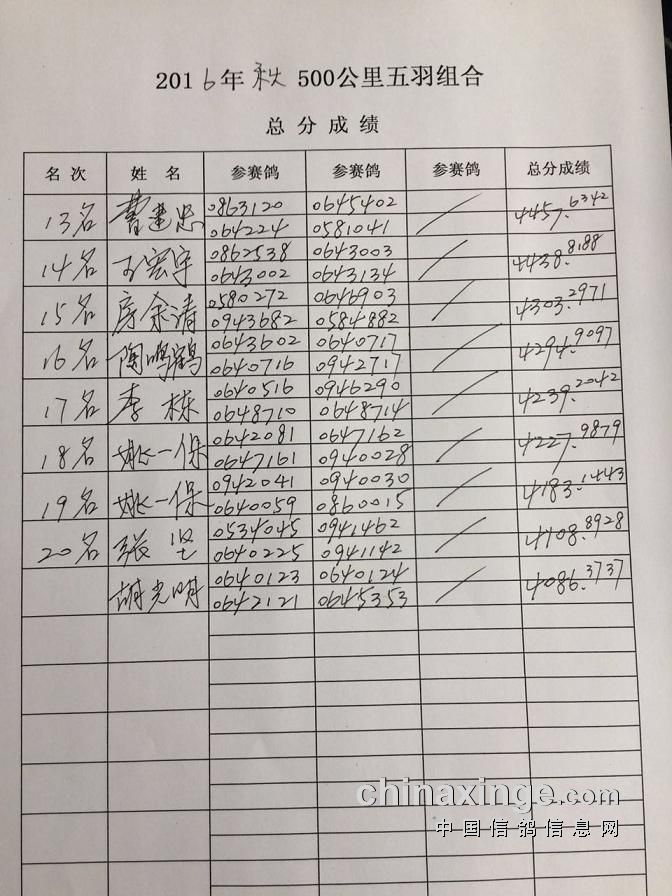 2016年 秋 500公里五羽组合
总 分 成 绩
名 次 姓 名 参赛鸽 参赛鸽 参赛鸽 总分成绩
13名 曹建忠 0863120 0645402 / 4457.6342
0642224 0581041
14名 王宏宇 0862538 0643003 / 4438.8188
0643002 0643134
15名 房余清 0580272 0646903 / 4303.2971
0943682 0584882
16名 陶鸣鹤 0643602 0640717 / 4294.9097
0640716 0942717
17名 李 栋 0640516 0946290 / 4239.2042
0648710 0648714
18名 姚一保 0642081 0647162 / 4227.9879
0647161 0940028
19名 姚一保 0942041 0940030 / 4183.1443
0640059 0860015
20名 张 坚 0534045 0941462 / 4108.8928
0640225 0941142
胡光明 0640123 0640124 / 4086.3737
0642121 0645353
chinaxinge.com
中国信鸽信息网